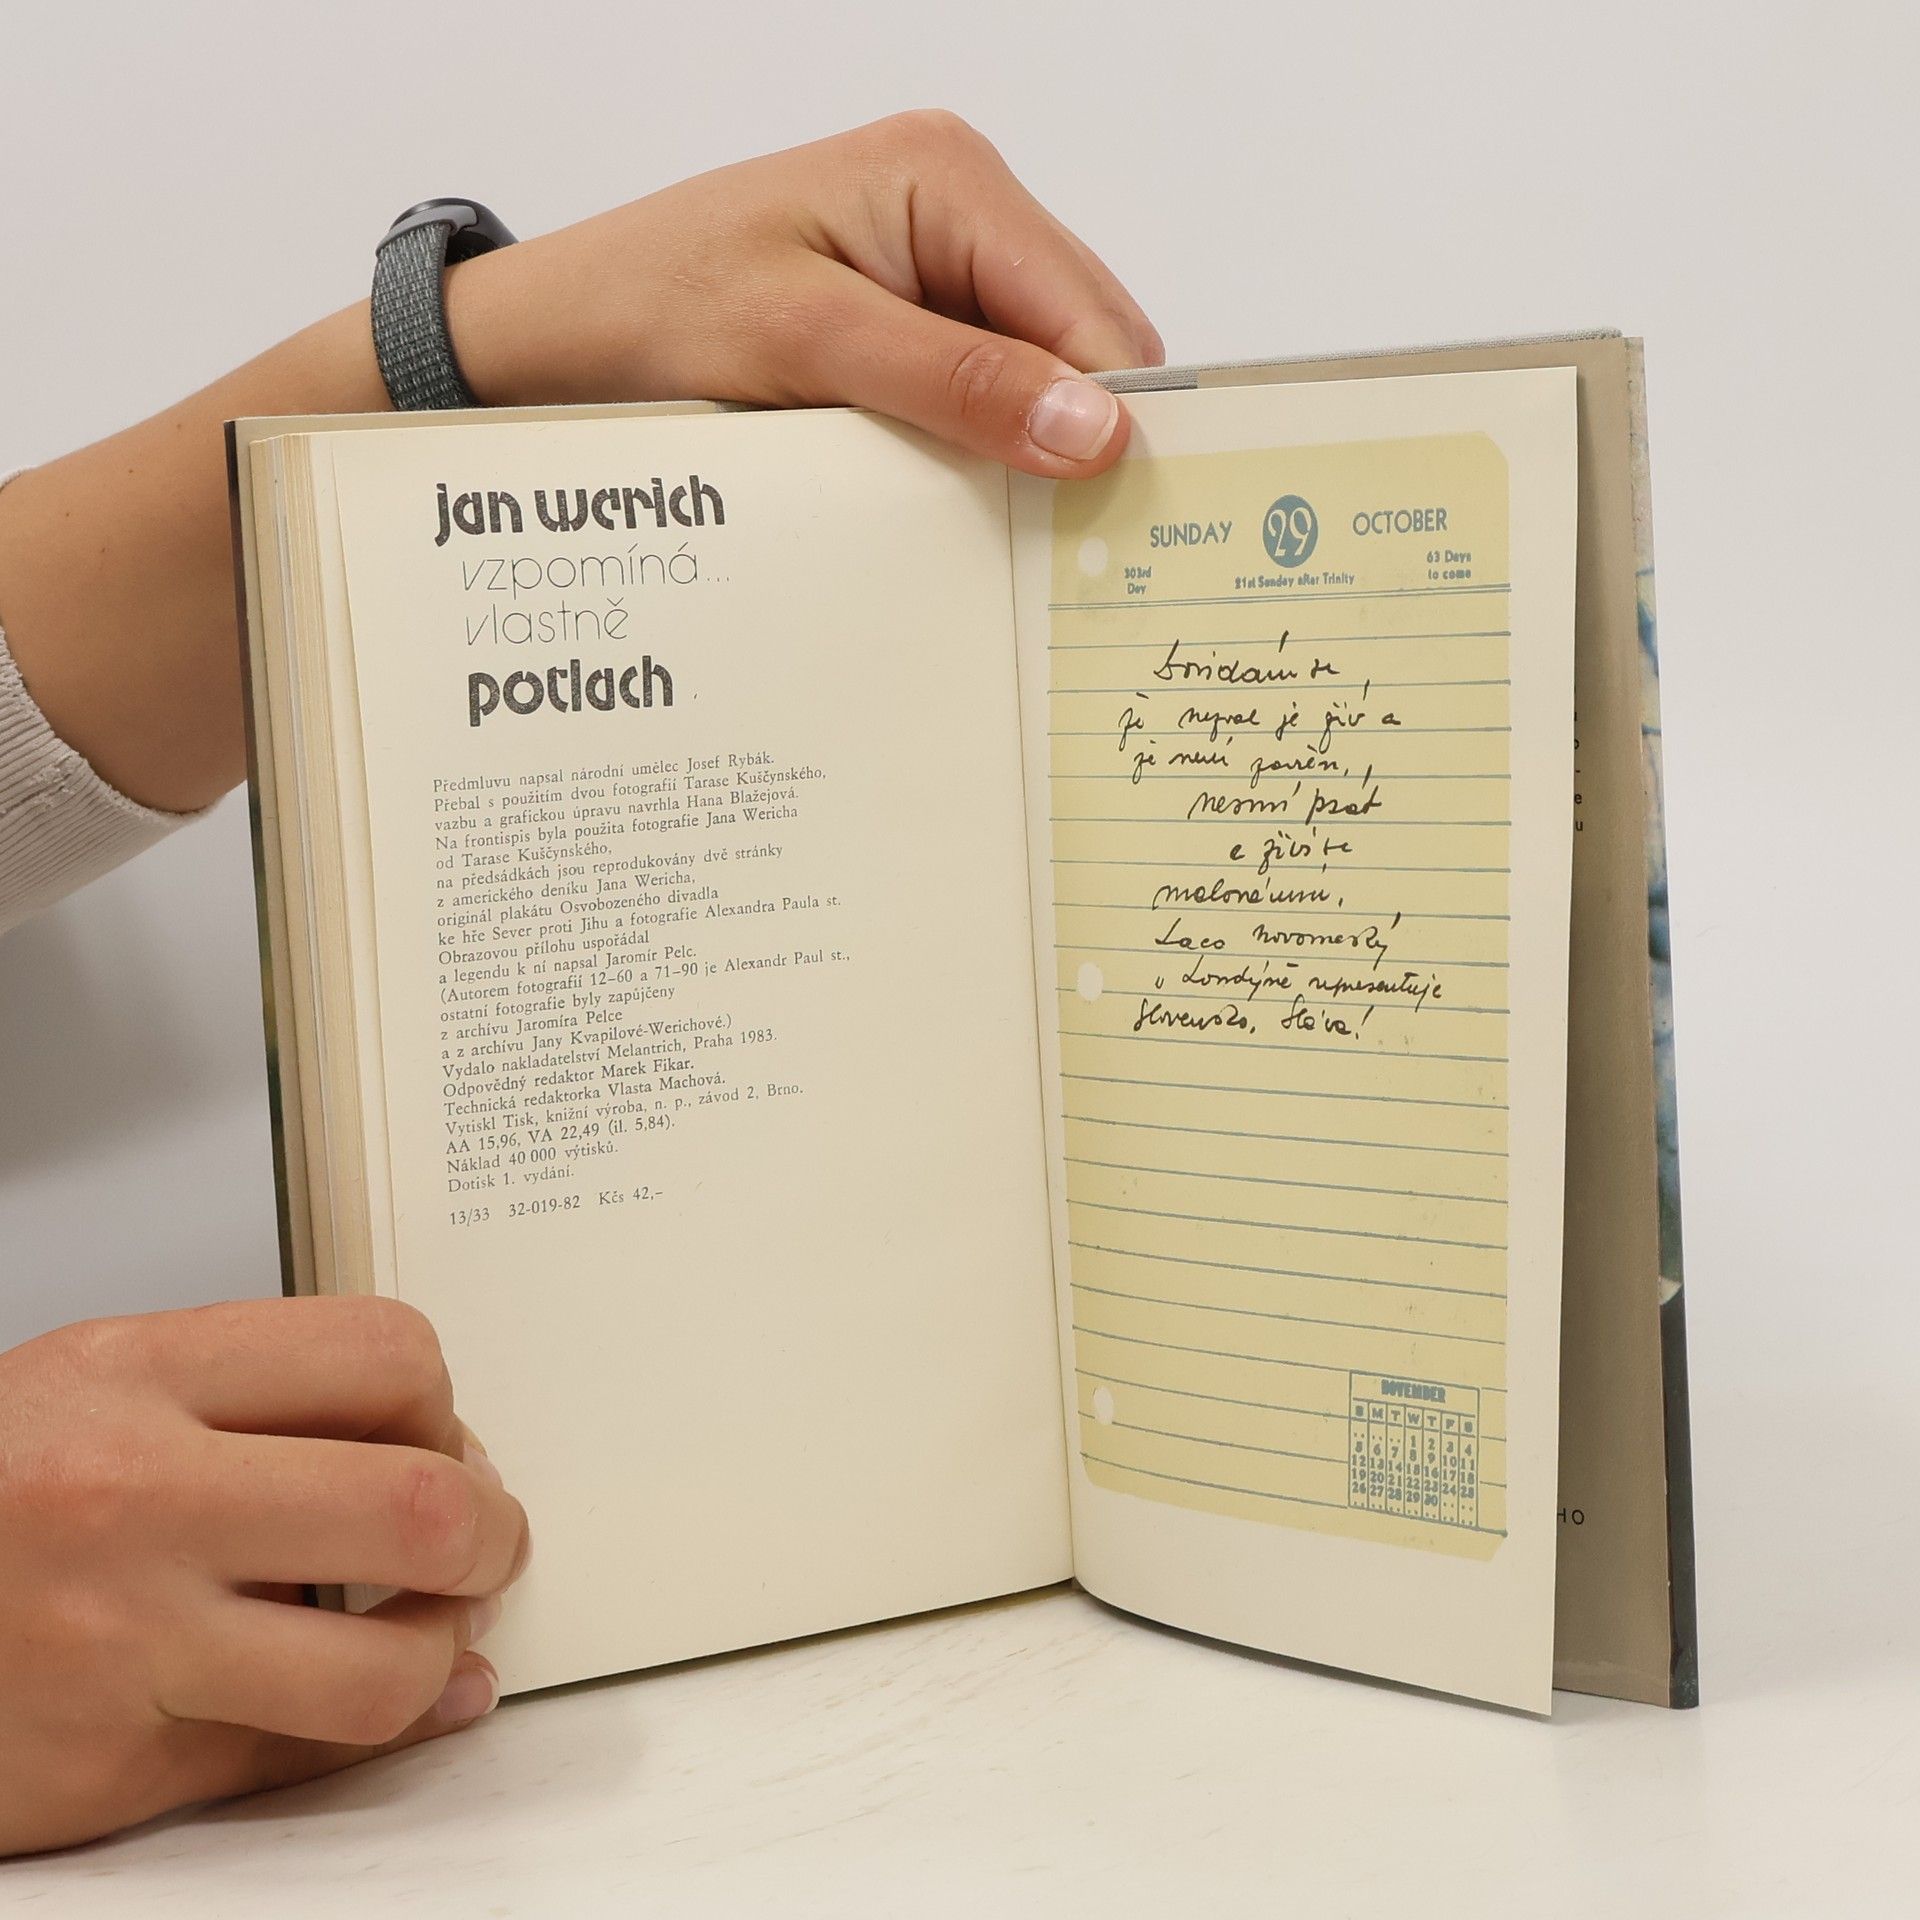 jan werich
vzpomíná...
vlastně
potlach
Předmluvu napsal národní umělec Josef Rybák.
Přebal s použitím dvou fotografií Tarase Kuščynského,
vazbu a grafickou úpravu navrhla Hana Blažejová.
Na frontispis byla použita fotografie Jana Wericha
od Tarase Kuščynského,
na předsádkách jsou reprodukovány dvě stránky
z amerického deníku Jana Wericha,
originál plakátu Osvobozeného divadla
ke hře Sever proti Jihu a fotografie Alexandra Paula st.
Obrazovou přílohu uspořádal
a legendu k ní napsal Jaromír Pelc.
(Autorem fotografií 12–60 a 71–90 je Alexandr Paul st.,
ostatní fotografie byly zapůjčeny
z archívu Jaromíra Pelce
a z archívu Jany Kvapilové-Werichové.)
Vydalo nakladatelství Melantrich, Praha 1983.
Odpovědný redaktor Marek Fikar.
Technická redaktorka Vlasta Machová.
Vytiskl Tisk, knižní výroba, n. p., závod 2, Brno.
AA 15,96, VA 22,49 (il. 5,84).
Náklad 40 000 výtisků.
Dotisk 1. vydání.
13/33 32-019-82 Kčs 42,–
SUNDAY 29 OCTOBER
303rd Day 21st Sunday after Trinity 63 Days to come
Dovídám se,
že nezval je živ a
že není zavřen,
nesmí psát
a živí se
malováním.
Laco Novomeský
v Londýně representuje
Slovensko. Sláva!
NOVEMBER
S M T W T F S
. . . . . . 1 2 3 4
5 6 7 8 9 10 11
12 13 14 15 16 17 18
19 20 21 22 23 24 25
26 27 28 29 30 . . . .
HO